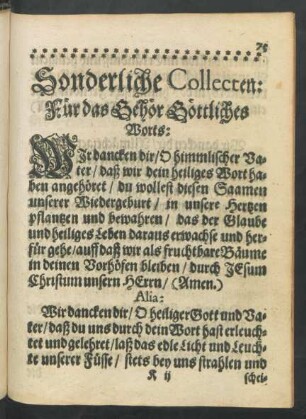 75
Sonderliche Collecten:
Für das Gehör Göttliches
Worts:
WIr dancken dir / O himmlischer Va-
ter / daß wir dein heiliges Wort ha-
ben angehöret / du wollest diesen Saamen
unserer Wiedergeburt / in unsere Hertzen
pflantzen und bewahren / das der Glaube
und heiliges Leben daraus erwachse und her-
für gehe / auff daß wir als fruchtbare Bäume
in deinen Vorhöfen bleiben / durch JEsum
Christum unsern HErrn / (Amen.)
Alia:
Wir dancken dir / O heiliger Gott und Va-
ter / daß du uns durch dein Wort hast erleuch-
tet und gelehret / laß das edle Licht und Leuch-
te unserer Füsse / stets bey uns strahlen und
K ij schei-